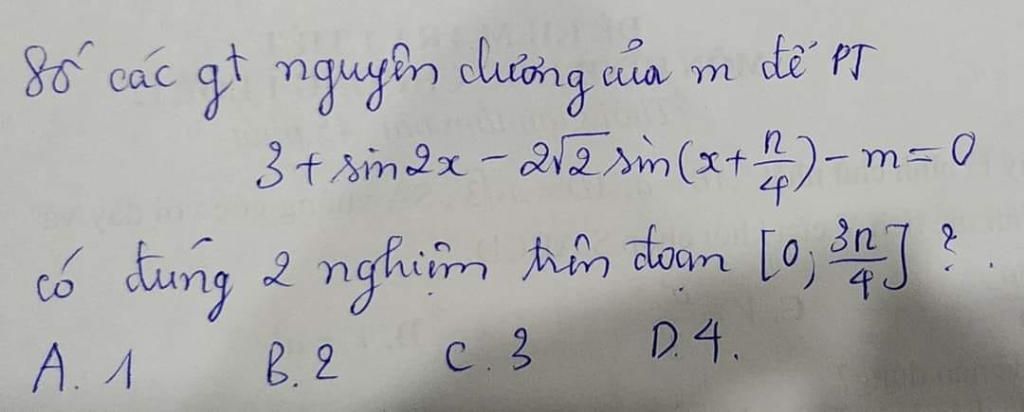 Số các gt nguyên dương của m để PT
3 + sin2x - 2√2 sin(x + π/4) - m = 0
có đúng 2 nghiệm trên đoạn [0; 3π/4] ?.
A. 1 B. 2 C. 3 D. 4.